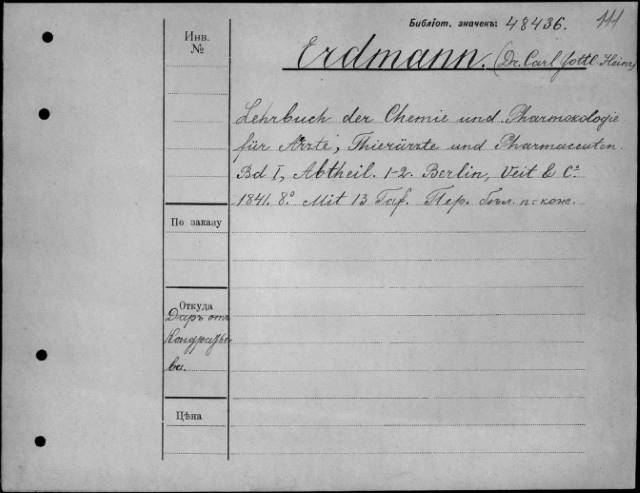 Библіот. значекъ: 48436. 111
Инв.
№
Erdmann. (Dr. Carl Gottl. Heinr)
Lehrbuch der Chemie und Pharmakologie
für Ärzte, Thierärzte und Pharmaceuten.
Bd I, Abtheil. 1-2. Berlin, Veit & Cº.
1841. 8º. Mit 13 Taf. Пер. бѣл. п. кож.
По заказу
Откуда
Даръ отъ
Кондратье
ва.
Цѣна